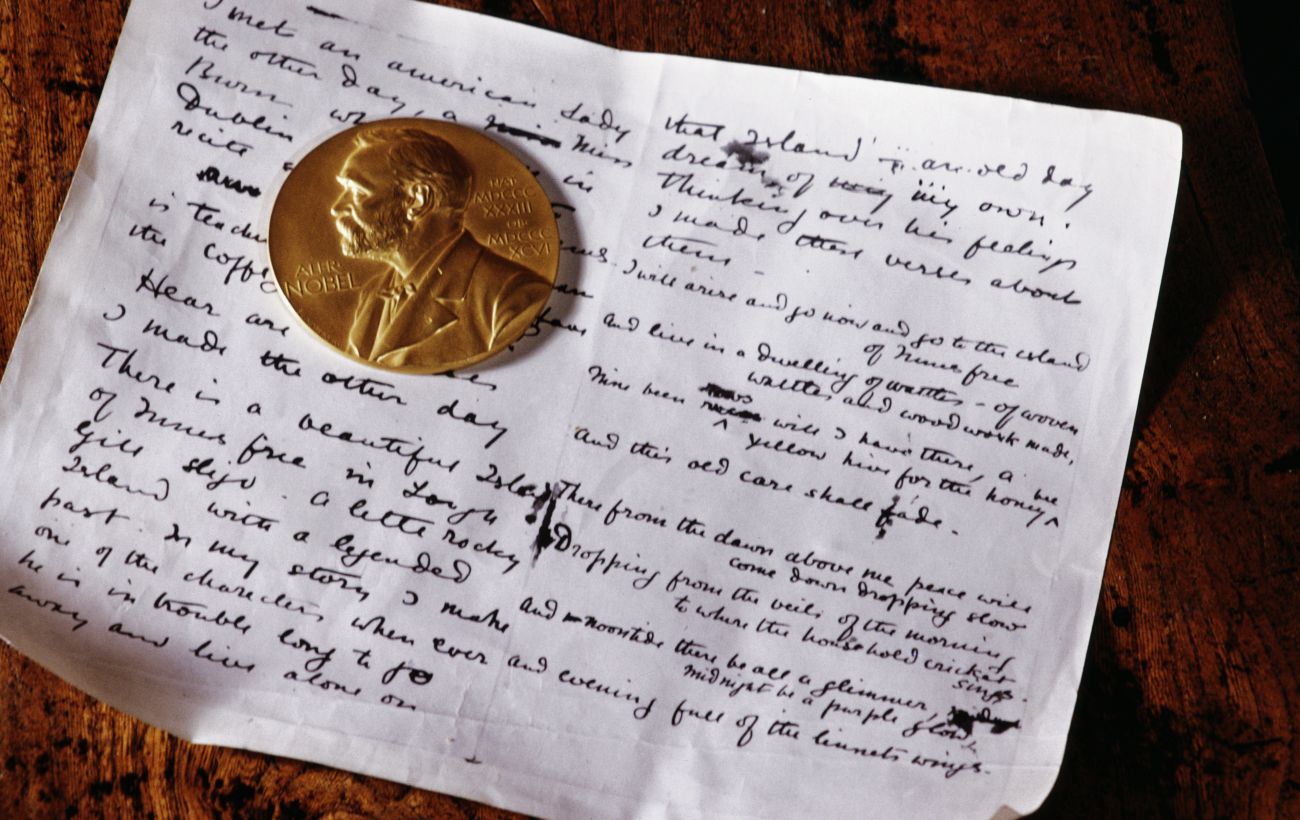 I met an american Lady
the other day, a Miss
Burn
Dublin in
recite
is teach
the coffe an
Hear are
I made the other day
There is a beautiful Isla
of Innis free in Lough
Gill Sligo. A little rocky
Island with a legended
past. In my story I make
one of the characters when ever
he is in trouble long to go
away and live alone on
ALFR.
NOBEL
NAT.
MDCCC
XXXIII
OB.
MDCCC
XCVI
that Island – an old day
dream of my my own.
Thinking over his feelings
I made these verses about
them –
I will arise and go now and go to the island
of Innis free
and live in a dwelling of wattles – of woven
wattles and wood work made,
Nine bean rows will I have there, a
yellow hive for the honey bee
And this old care shall fade.
There from the dawn above me peace will
come down dropping slow
Dropping from the veils of the morning
to where the household cricket
sings.
And noontide there be all a glimmer,
midnight be a purple glow,
and evening full of the linnets wings.